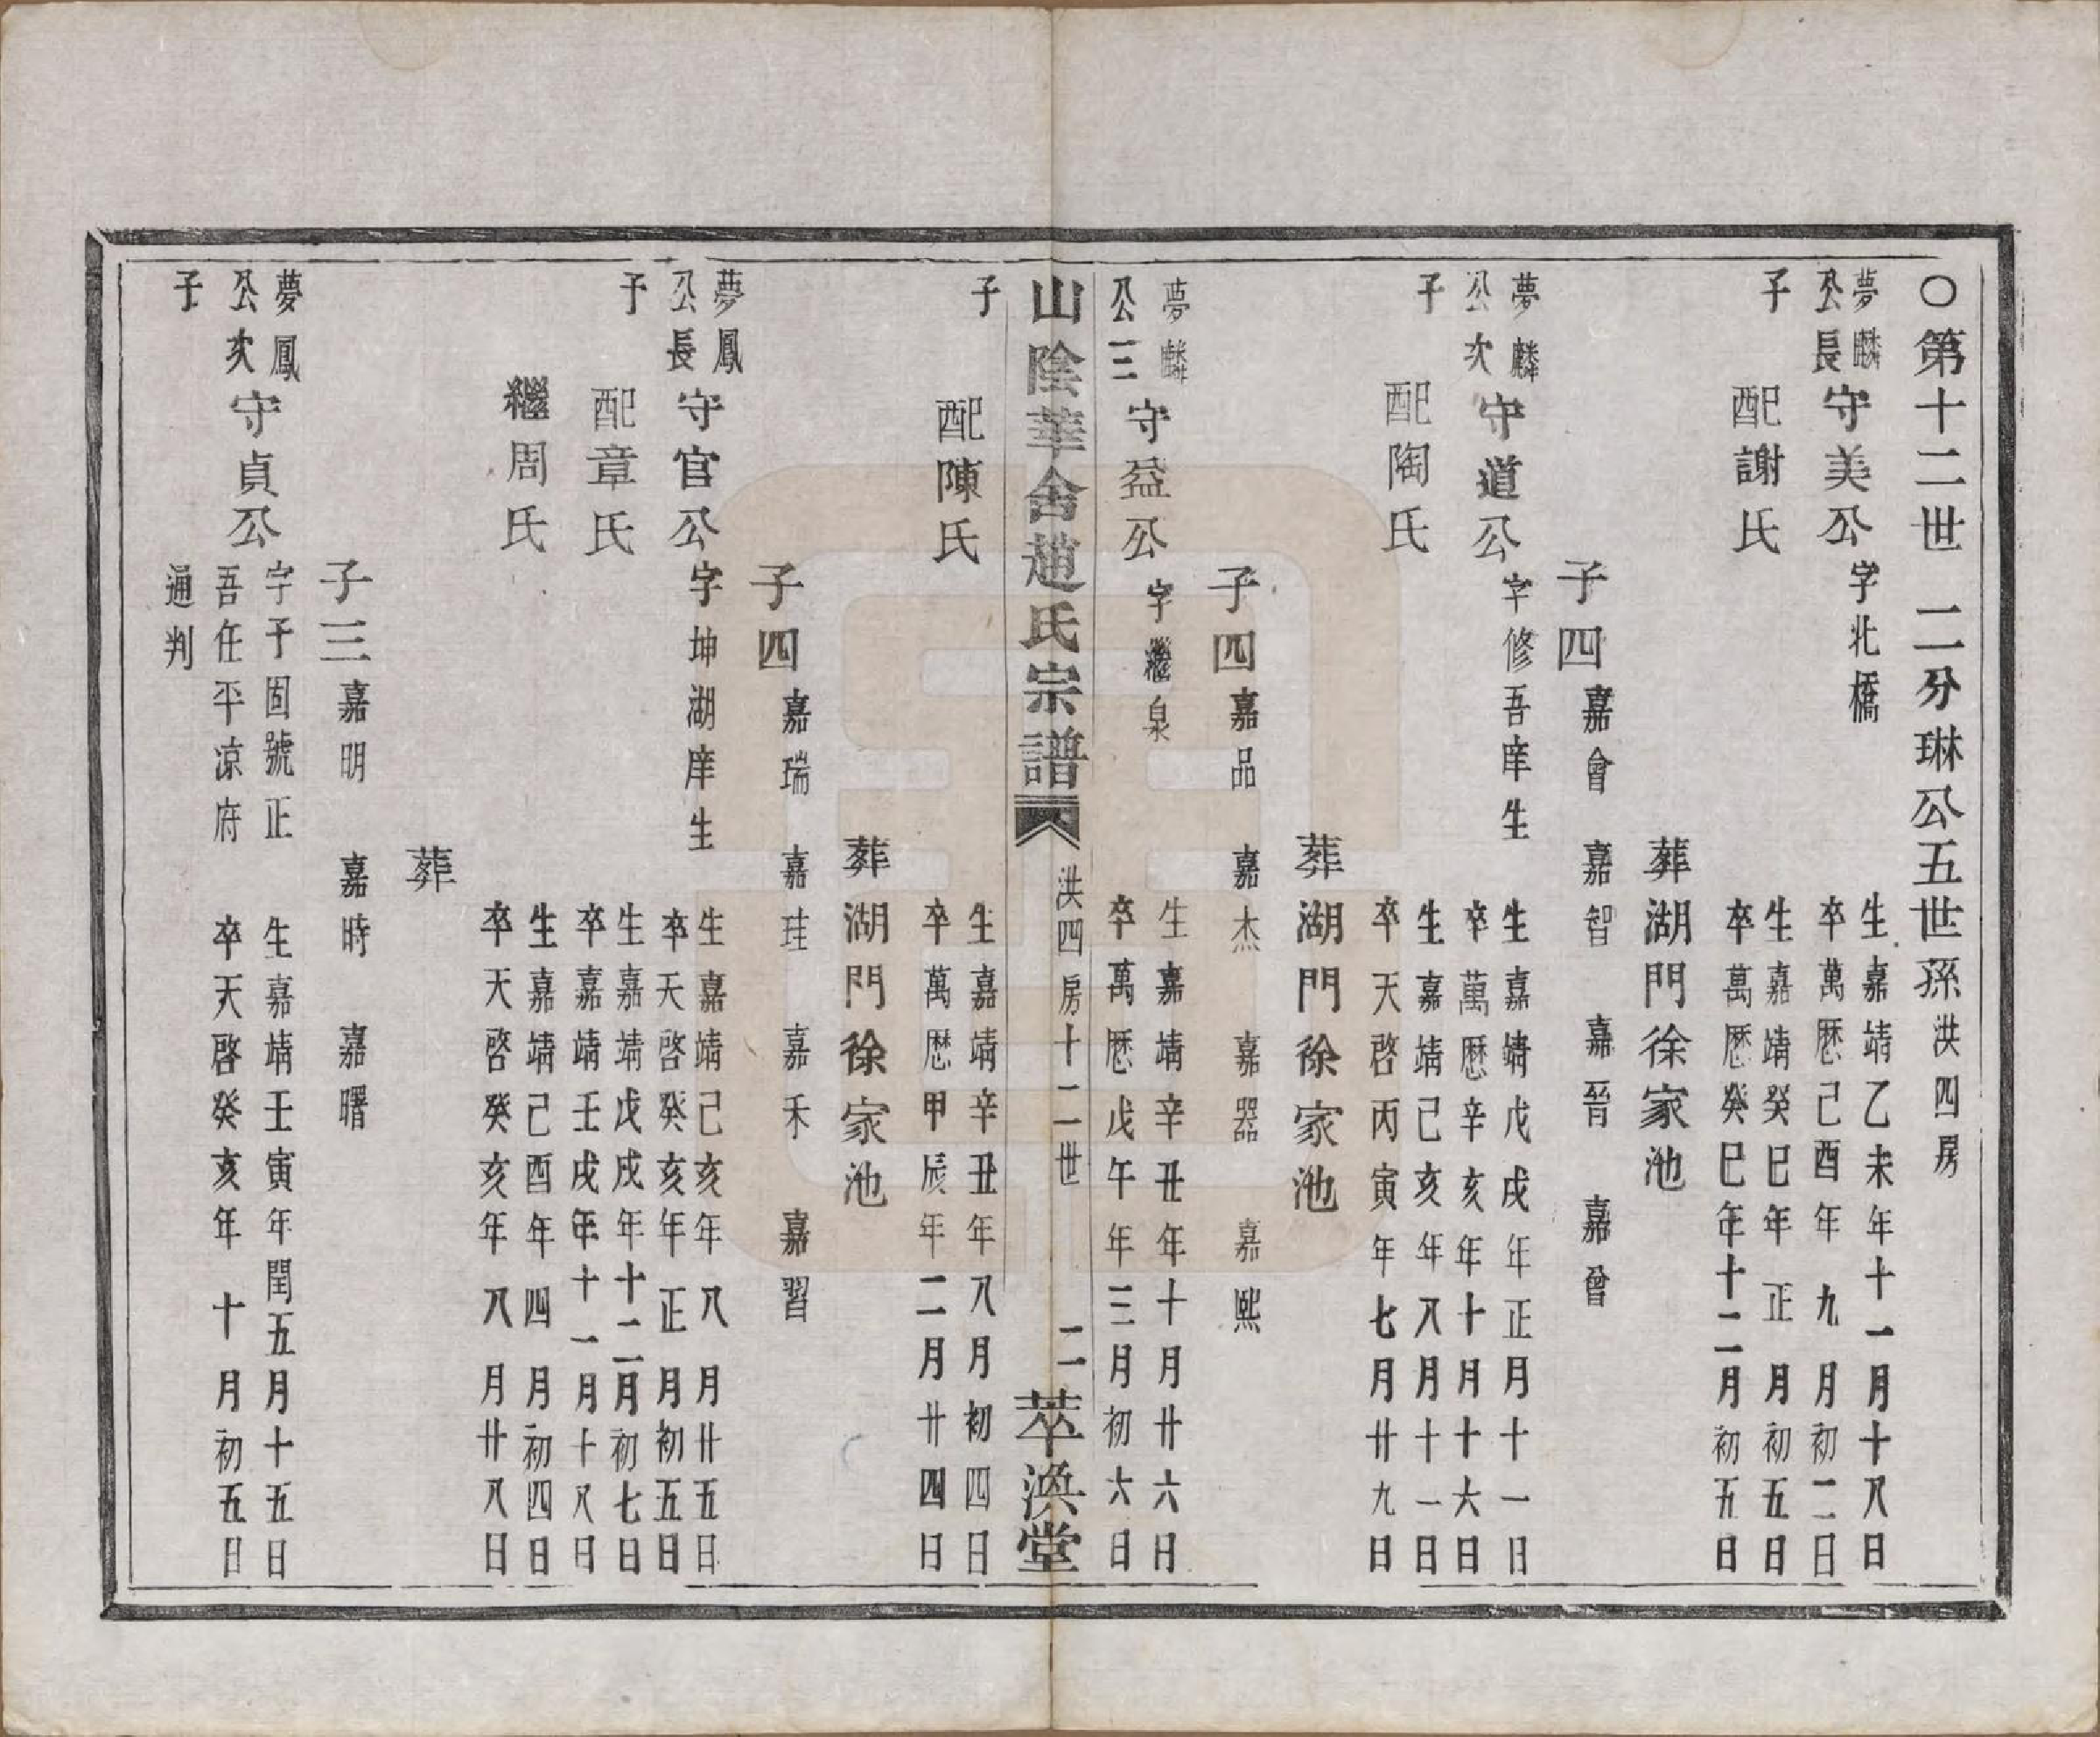 〇第十二世 二分琳公五世孫洪四房
夢麟公長子
守美公
字北橋
生嘉靖乙未年十一月十八日
卒萬歷己酉年九月初二日
配謝氏
生嘉靖癸巳年正月初五日
卒萬歷癸巳年十二月初五日
葬湖門徐家池
子四 嘉會 嘉智 嘉晉 嘉曾
夢麟公次子
守道公
字修吾庠生
生嘉靖戊戌年正月十一日
卒萬歷辛亥年十月十六日
配陶氏
生嘉靖己亥年八月十一日
卒天啓丙寅年七月廿九日
葬湖門徐家池
子四 嘉品 嘉杰 嘉器 嘉熙
夢麟公三子
守益公
字繼泉
生嘉靖辛丑年十月廿六日
卒萬歷戊午年三月初六日
山陰華舍趙氏宗譜 洪四房十二世 二 萃渙堂
配陳氏
生嘉靖辛丑年八月初四日
卒萬歷甲辰年二月廿四日
葬湖門徐家池
子四 嘉瑞 嘉珪 嘉禾 嘉習
夢鳳公長子
守官公
字坤湖庠生
生嘉靖己亥年八月廿五日
卒天啓癸亥年正月初五日
配章氏
生嘉靖戊戌年十二月初七日
卒嘉靖壬戌年十一月十八日
繼周氏
生嘉靖己酉年四月初四日
卒天啓癸亥年八月廿八日
葬
子三 嘉明 嘉時 嘉曙
夢鳳公次子
守貞公
字予固號正
吾任平凉府
通判
生嘉靖壬寅年閏五月十五日
卒天啓癸亥年十月初五日